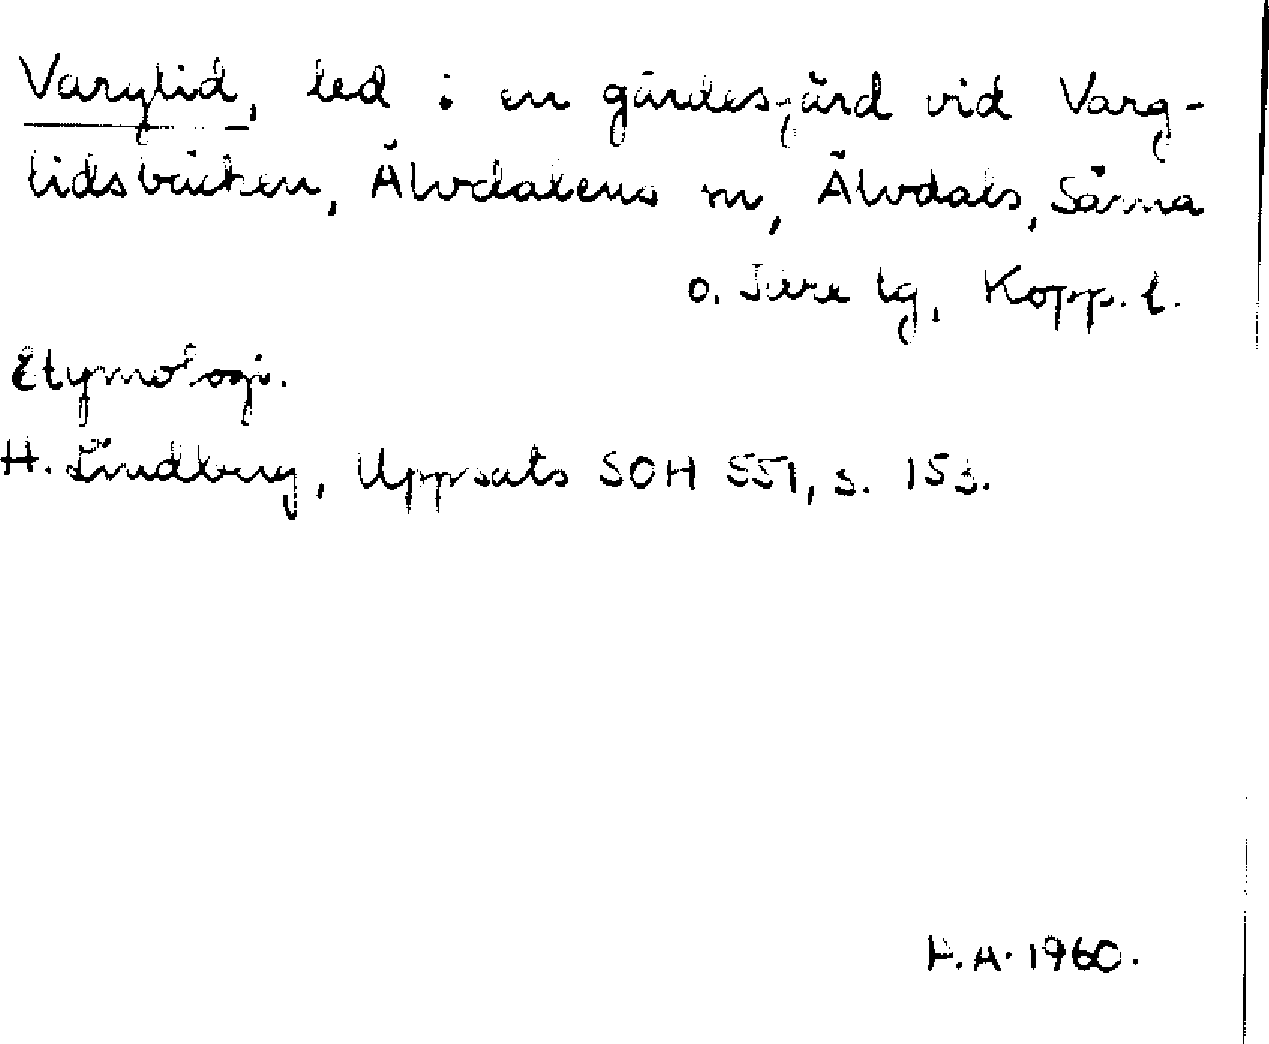 Varglid, led i en gärdesgård vid Varg-
lidsbäcken, Älvdalens sn, Älvdals, Särna
o. Idre tg, Kopp. l.
Etymologi.
H. Lindberg, Uppsats SOH 551, s. 153.
H.A. 1960.